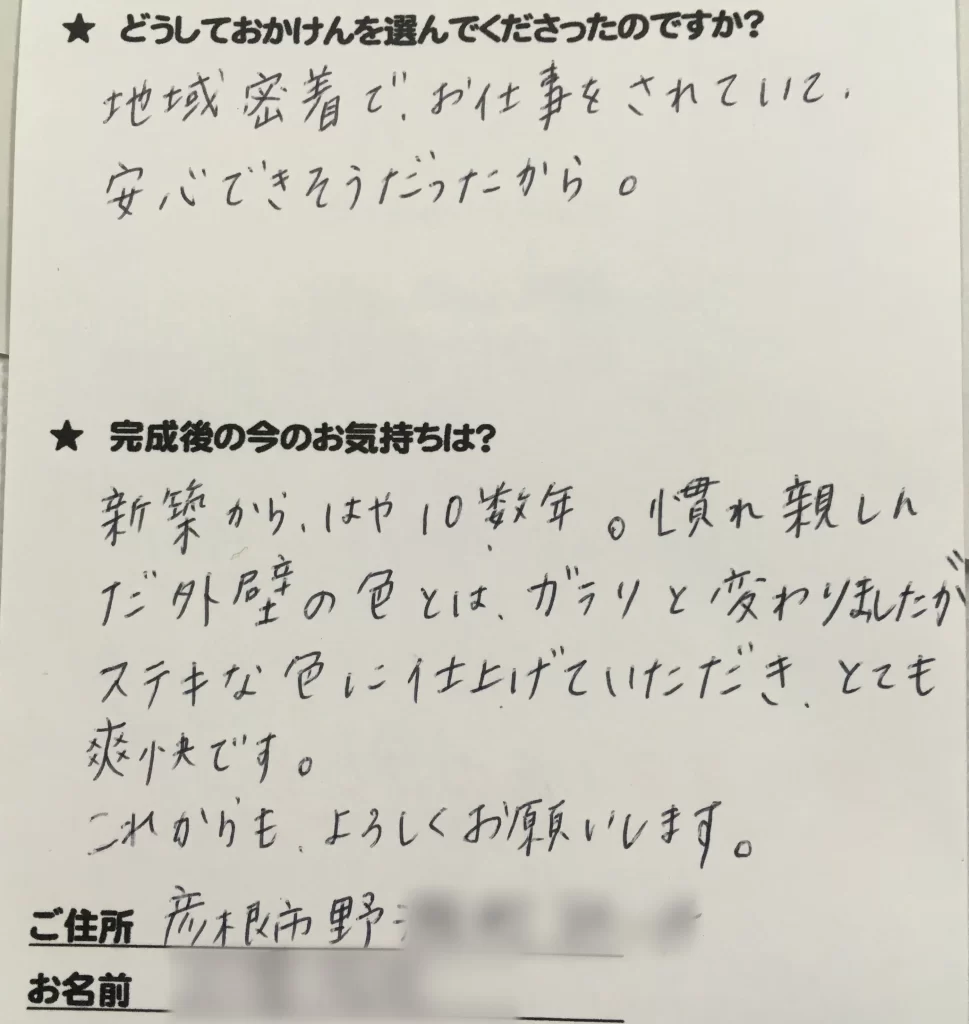 ★ どうしておかけんを選んでくださったのですか?
地域密着で、お仕事をされていて、
安心できそうだったから。
★ 完成後の今のお気持ちは?
新築から、はや10数年。慣れ親しん
だ外壁の色とは、ガラリと変わりましたが
ステキな色に仕上げていただき、とても
爽快です。
これからも、よろしくお願いします。
ご住所 彦根市野
お名前